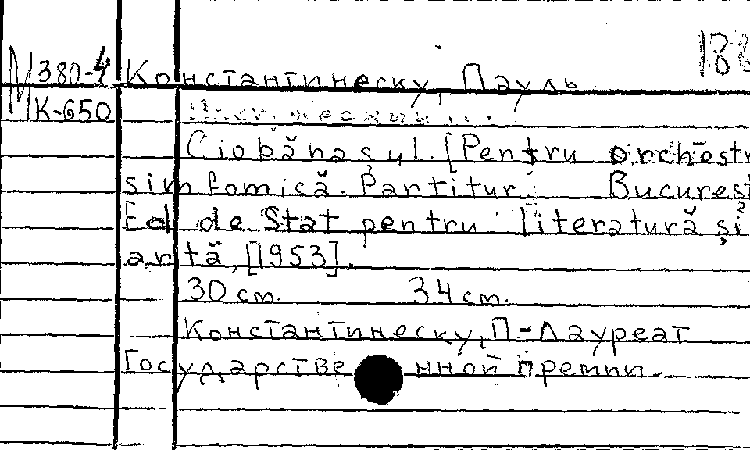 188
М 380-4 Константинеску, Пауль
К-650
Ciobănaşul. [Pentru orchestr
simfomică. Partitur. Bucureşt
Ed de Stat pentru literatură şi
artă, [1953].
30 cm. 34 cm.
Константинеску, П-Лауреат
Государстве нной премии.